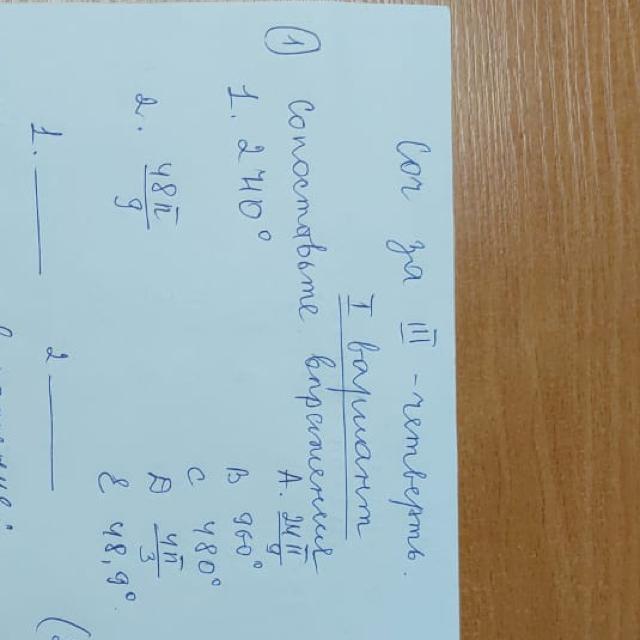 Соч за III - четверть.
I вариант
① Сопоставьте выражения
1. 240°
2. 48π/9
A. 24π/9
B 960°
C 480°
D 4π/3
E 48,9°
1. ____ 2 ____